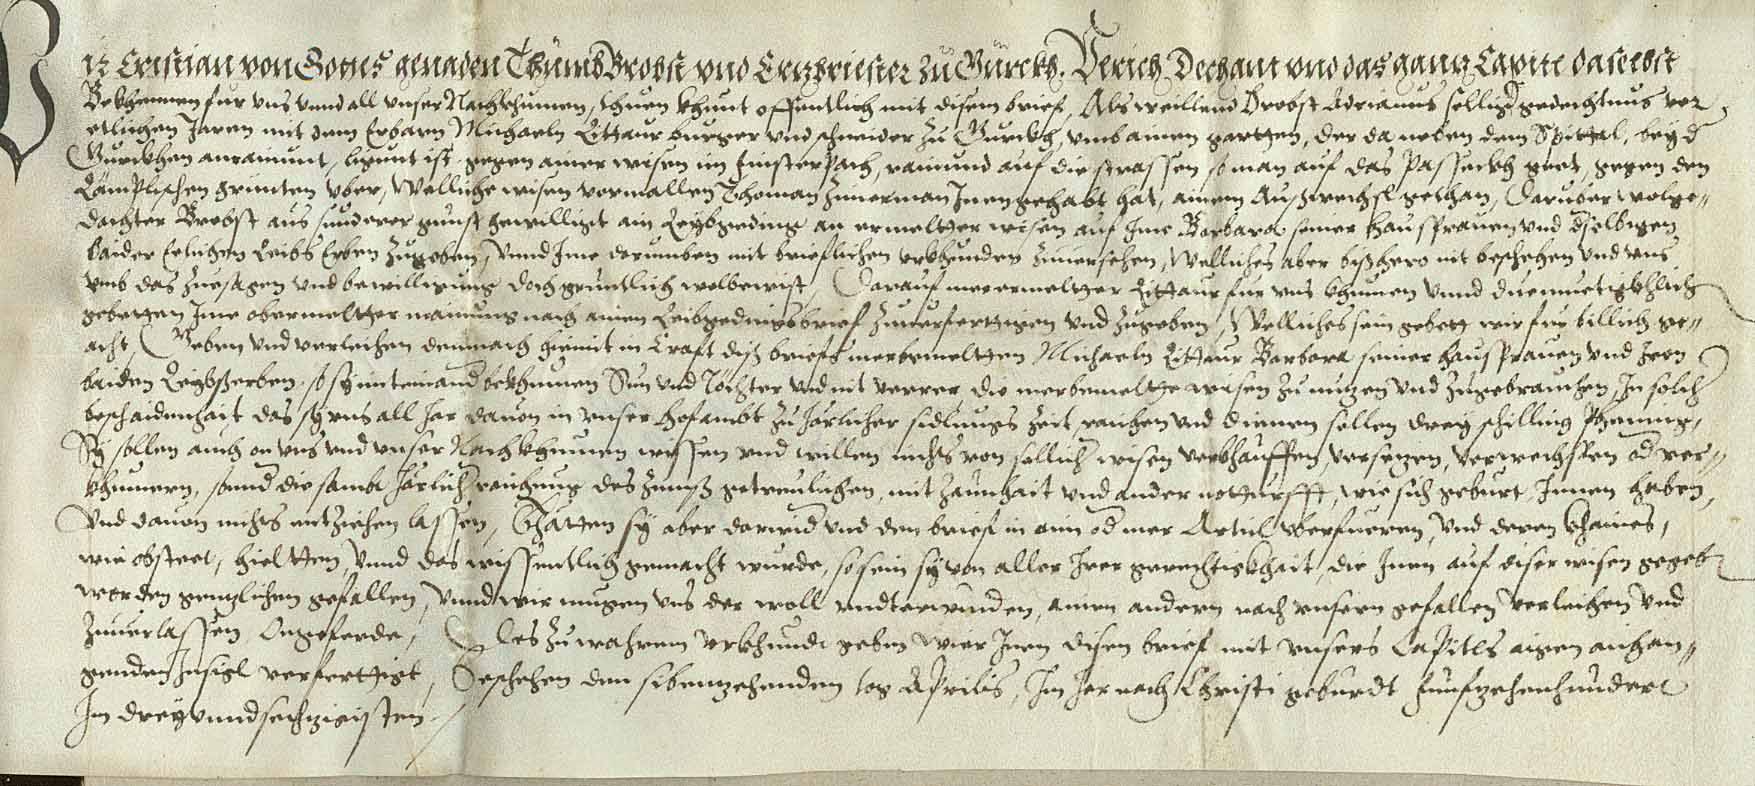 Wir Cristian von Gottes genaden ThumbBrobst vnd Ertzbriester zu Gurckh. Vlrich Dechant vnd das gantz Capitl daselbst
Bekhennen fur vns vnnd all vnser Nachkhumen, thuen khunt offentlich mit disem brief, Als weillend Brobst Adrianus selliger gedechtnus vor
etlichen Jaren mit dem Erbarn Michaeln Littaur burger vnd schneider zu Gurckh, vmb ainen gartten, der da neben dem Spittal, bey d
Gurckhen anrainunt, ligunt ist, gegen ainer wisen im Finsterpach, rainund auf die strassen so man auf das Passeckh geet, gegen den
Lämplischen grunten vber, Welliche wisen vormallen Thoman Zimerman Innen gehabt hat, ainem Außwechsl gethan, Daruber wolge-
dachter Brobst aus sunderer gunst gewilligt ain Leybgeding an ermeltter wisen auf Ime Barbara seiner Haussfrauen vnd dselbigen
baider Eelichen Leibs Erben zugeben, Vnnd Ime darumben mit brieflichen vrkhunden zuuersehen, Welliches aber bißhero nit beschehen vnd vns
vmb das zuesagen vnd bewilligung doch gruntlich wolbewist, Darauf merermeltter Littaur fur vns khumen vnnd diemuetigkhlich
gebetten Ime obermeltter mainung nach ainen Leibgedingsbrief zuuerferttigen vnd zugeben, Welliches sein gebett wir fur billich ge-
acht, Geben vnd verleihen demnach hiemit in Crafft diß brieffs merbemeltten Michaeln Littaur Barbara seiner haussfrauen vnd Iren
baiden Leybßerben, so sy miteinand bekhumen Sun vnd Töchter vnd nit verrer, die merbemeltte wisen zu nutzen vnd zugebrauchen, In solch
beschaidenhait das sy vns all Jar dauon in vnser hofambt zu Järlicher stifftungs Zeit raichen vnd dienen sollen drey schilling phening,
Sy sollen auch on vns vnd vnser Nachkhumen wissen vnd willen nichts von sollich wisen verkhauffen, versetzen, verwechslen od ver-
khumern, sonnd die sambt Järlich raichung des Zinnß getreulichen, mit Zaunhait vnd ander notturfft, wie sich geburt Innen haben,
Vnd dauon nichts entziehen lassen, Thätten sy aber darwid vnd den brief in ain od mer Articl vberfueren, vnd deren khaines,
wie obsteet, hieltten, Vnnd das wissentlich gemacht wurde, so sein sy von aller Irer gerechtigkhait, die Inen auf diser wisen gegeb
worden gentzlichen gefallen, Vnnd wir mugen vns der woll vndterwinden, ainen andern nach vnsern gefallen verleihen vnd
zuuerlassen Ongeferde, Des zu wahrem vrkhundt geben wier Inen disen brief mit vnsers Capitls aigen anhan-
genden Insigl verferttigt, Beschehen den sibentzehenden tag Aprilis, Im Jar nach Christi geburdt Funfzehenhundert
Im dreyvnndsechzigisten.